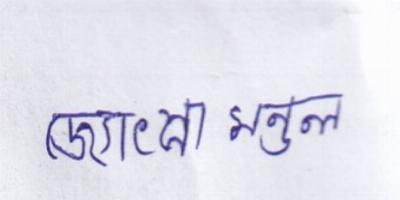 জ্যোৎস্না মন্ডল